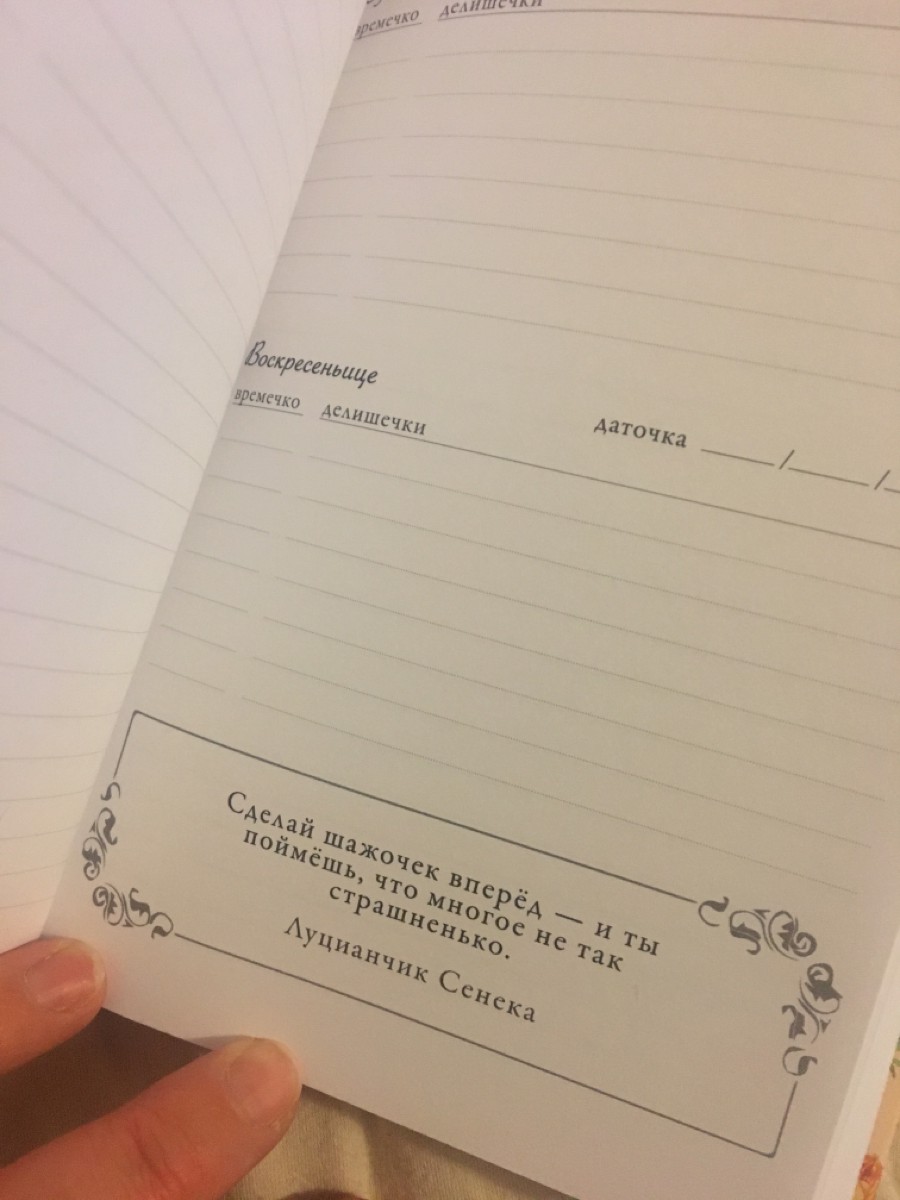 времечко делишечки
Воскресеньице
времечко делишечки даточка ____/____/_
Сделай шажочек вперёд — и ты
поймёшь, что многое не так
страшненько.
Луцианчик Сенека